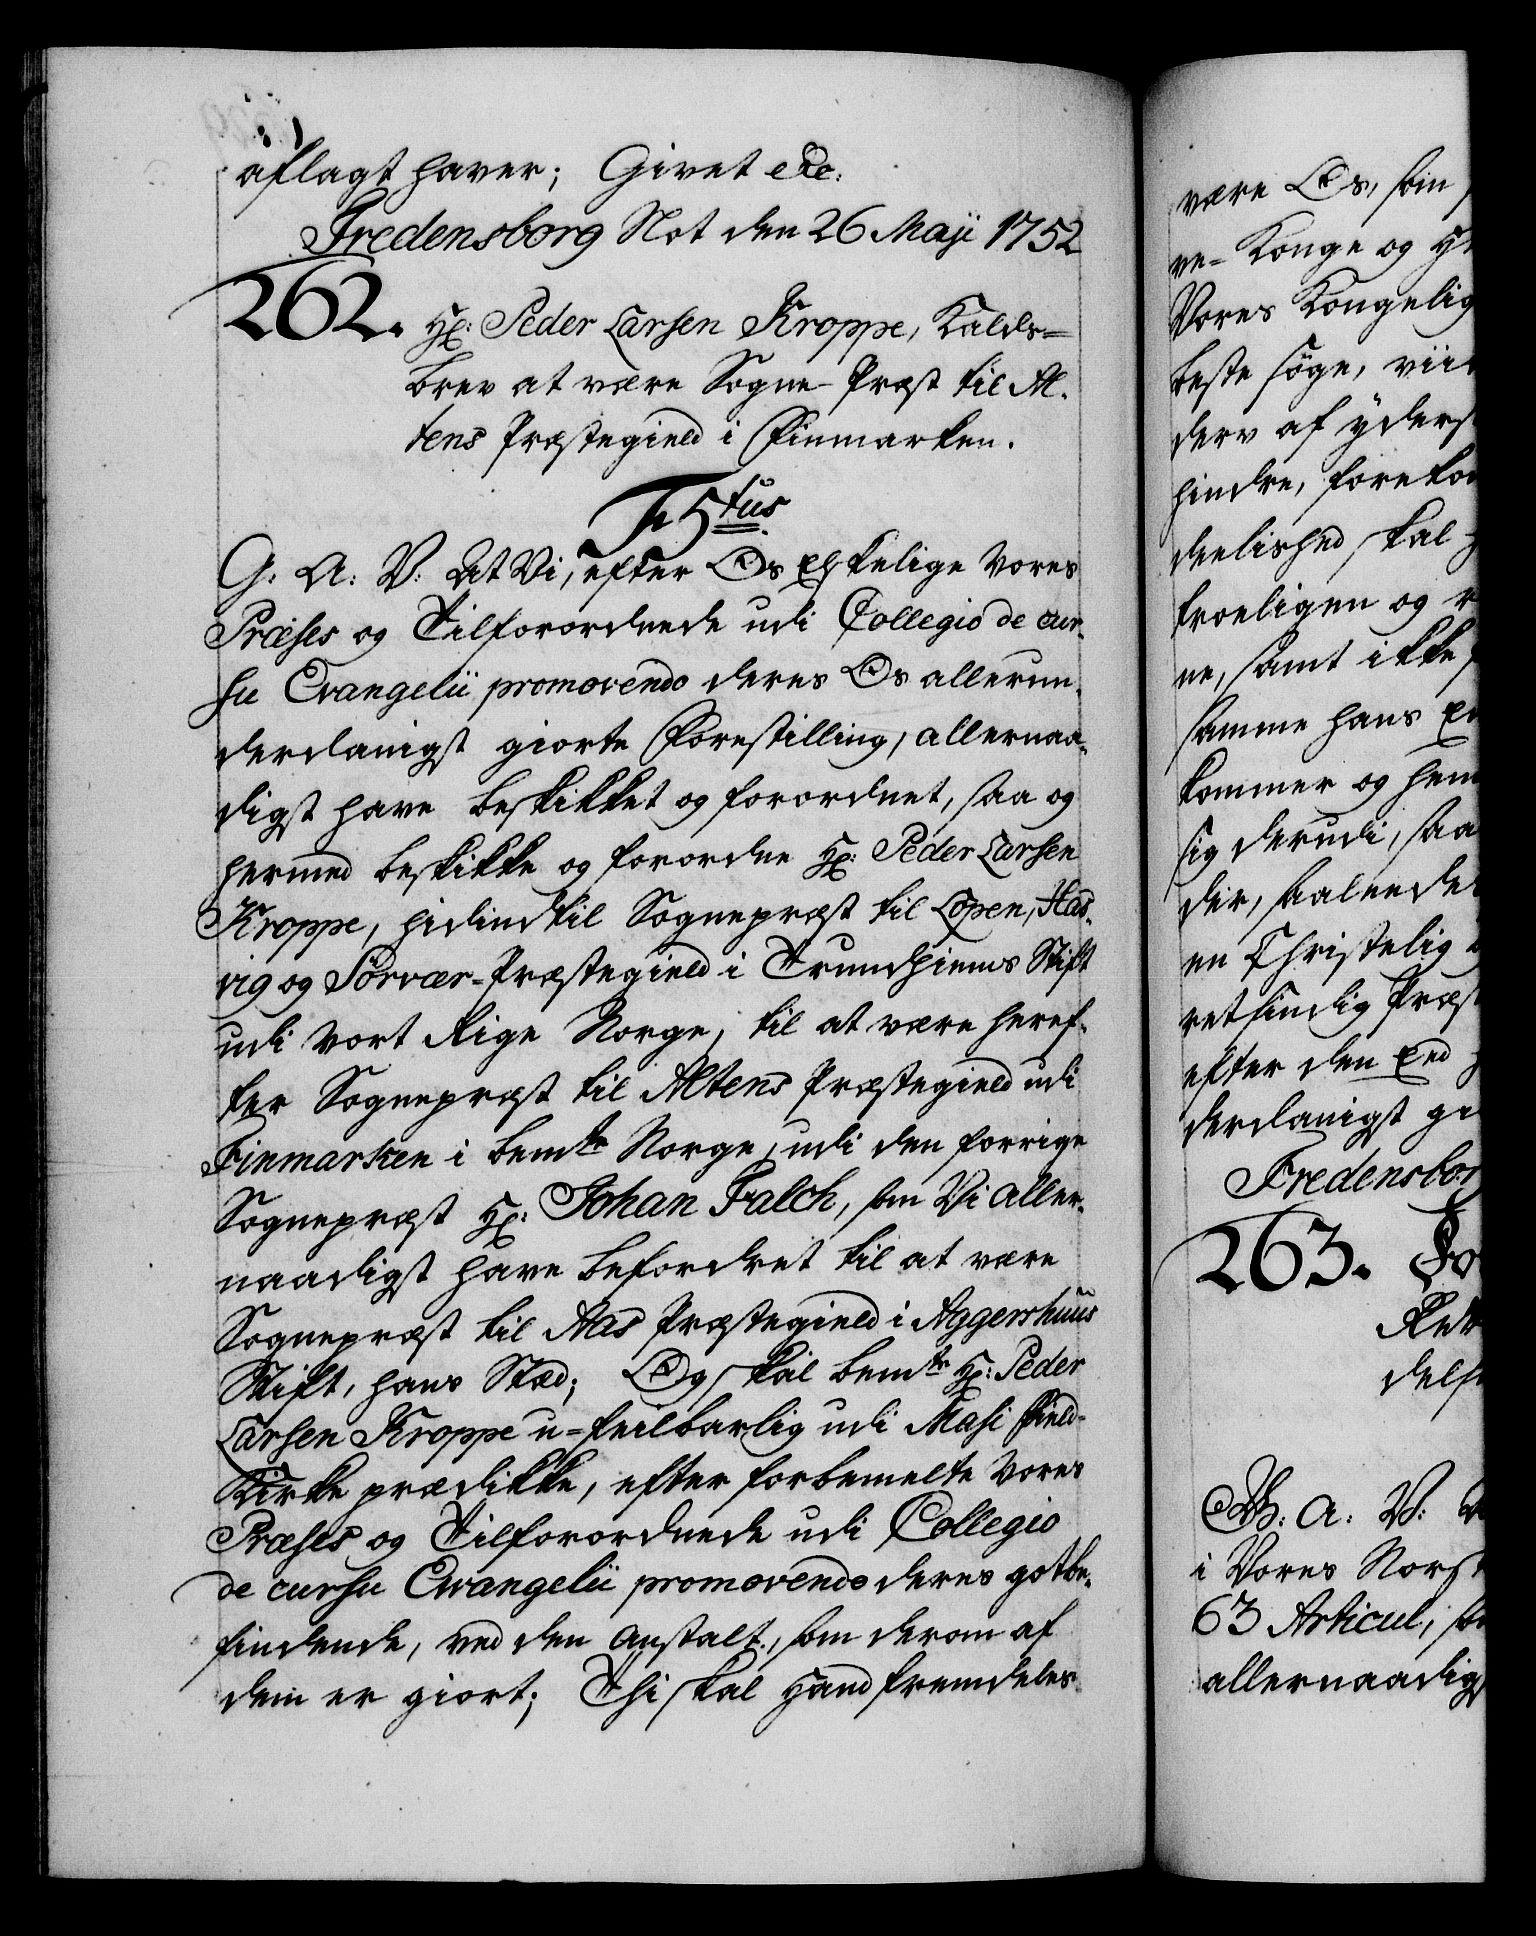 aflagt haver; Givet etc:
Fredensborg Slot den 26 Maji 1752
262. Hr: Peder Larsen Kroppe, Kalds-
brev at være Sogne-Præst til Al-
tens Præstegield i Finmarken.
F 5tus
G: A: V: At Vi, efter Os Elskelige Vores
Præses og Tilforordnede udi Collegio de cur-
su Evangelii promovendo deres Os allerun-
derdanigst giorte Forestilling, allernaa-
digst have beskikket og forordnet, saa og
hermed beskikke og forordne Hr: Peder Larsen
Kroppe, hidindtil Sognepræst til Lopen, Has-
vig og Sørvær-Præstegield i Trundhiems Stift
udi Vort Rige Norge, til at være heref-
ter Sognepræst til Altens Præstegield udi
Finmarken i bemte Norge, udi den forrige
Sognepræst Hr: Johan Falch, som Vi aller-
naadigst have befordret til at være
Sognepræst til Aas Præstegield i Aggershuus
Stift, hans Stæd; Og skal bemte Hr: Peder
Larsen Kroppe u-feilbarlig udi Masi Field-
Kirke prædikke, efter forbemelte Vores
Præses og Tilforordnede udi Collegio
de cursu Evangelii promovendo deres gotbe-
findende, ved den Anstalt, som derom af
dem er giort; Thi skal Hand fremdeles
være Os, som
ve-Konge og H
Vores Kongelig
beste søge, vii
derv af yders
hindre, foreko
deelished skal
troeligen og
ne, samt ikke
samme hans E
kommer og hem
sig derudi, saa
der, saaleede
en Christelig
retsindig Præst
efter den Eed
derdanigst gi
Fredensbor
263. Fo
Rett
delse
G: A: V:
i Vores Norsk
63 Articul, so
allernaadigs